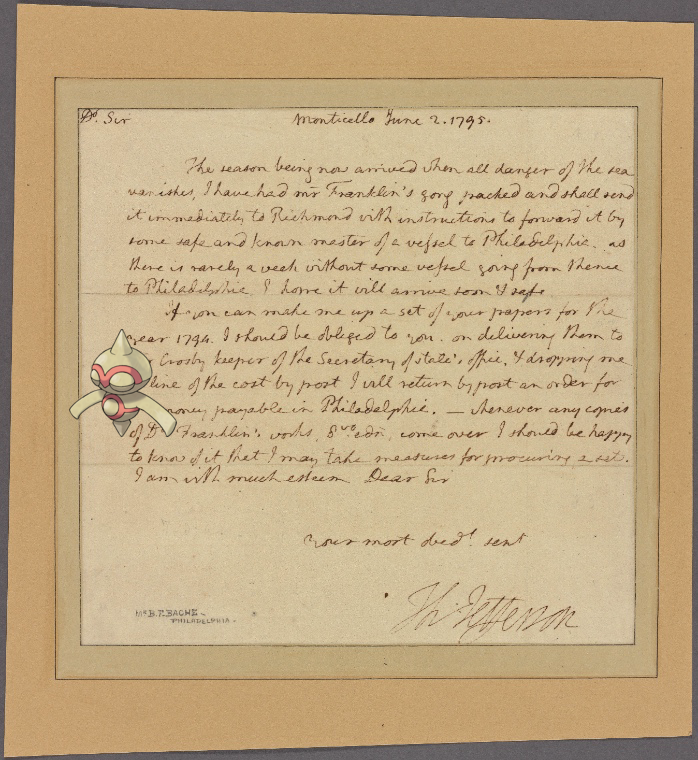 Dr. Sir Monticello June 2. 1795.
The season being now arrived when all danger of the sea
vanishes, I have had mr Franklin's gong packed and shall send
it immediately to Richmond with instructions to forward it by
some safe and known master of a vessel to Philadelphia. as
there is rarely a week without some vessel going from thence
to Philadelphia I hope it will arrive soon & safe
If you can make me up a set of your papers for the
year 1794. I should be obliged to you. on delivering them to
Crosby keeper of the Secretary of state's office, & dropping me
line of the cost by post I will return by post an order for
money payable in Philadelphia. — whenever any copies
of Dr Franklin's works, 8vo. edn. come over I should be happy
to know of it that I may take measures for procuring a set.
I am with much esteem Dear Sir
Your most obedt. servt
Th: Jefferson
Mr B. F. BACHE –
PHILADELPHIA.